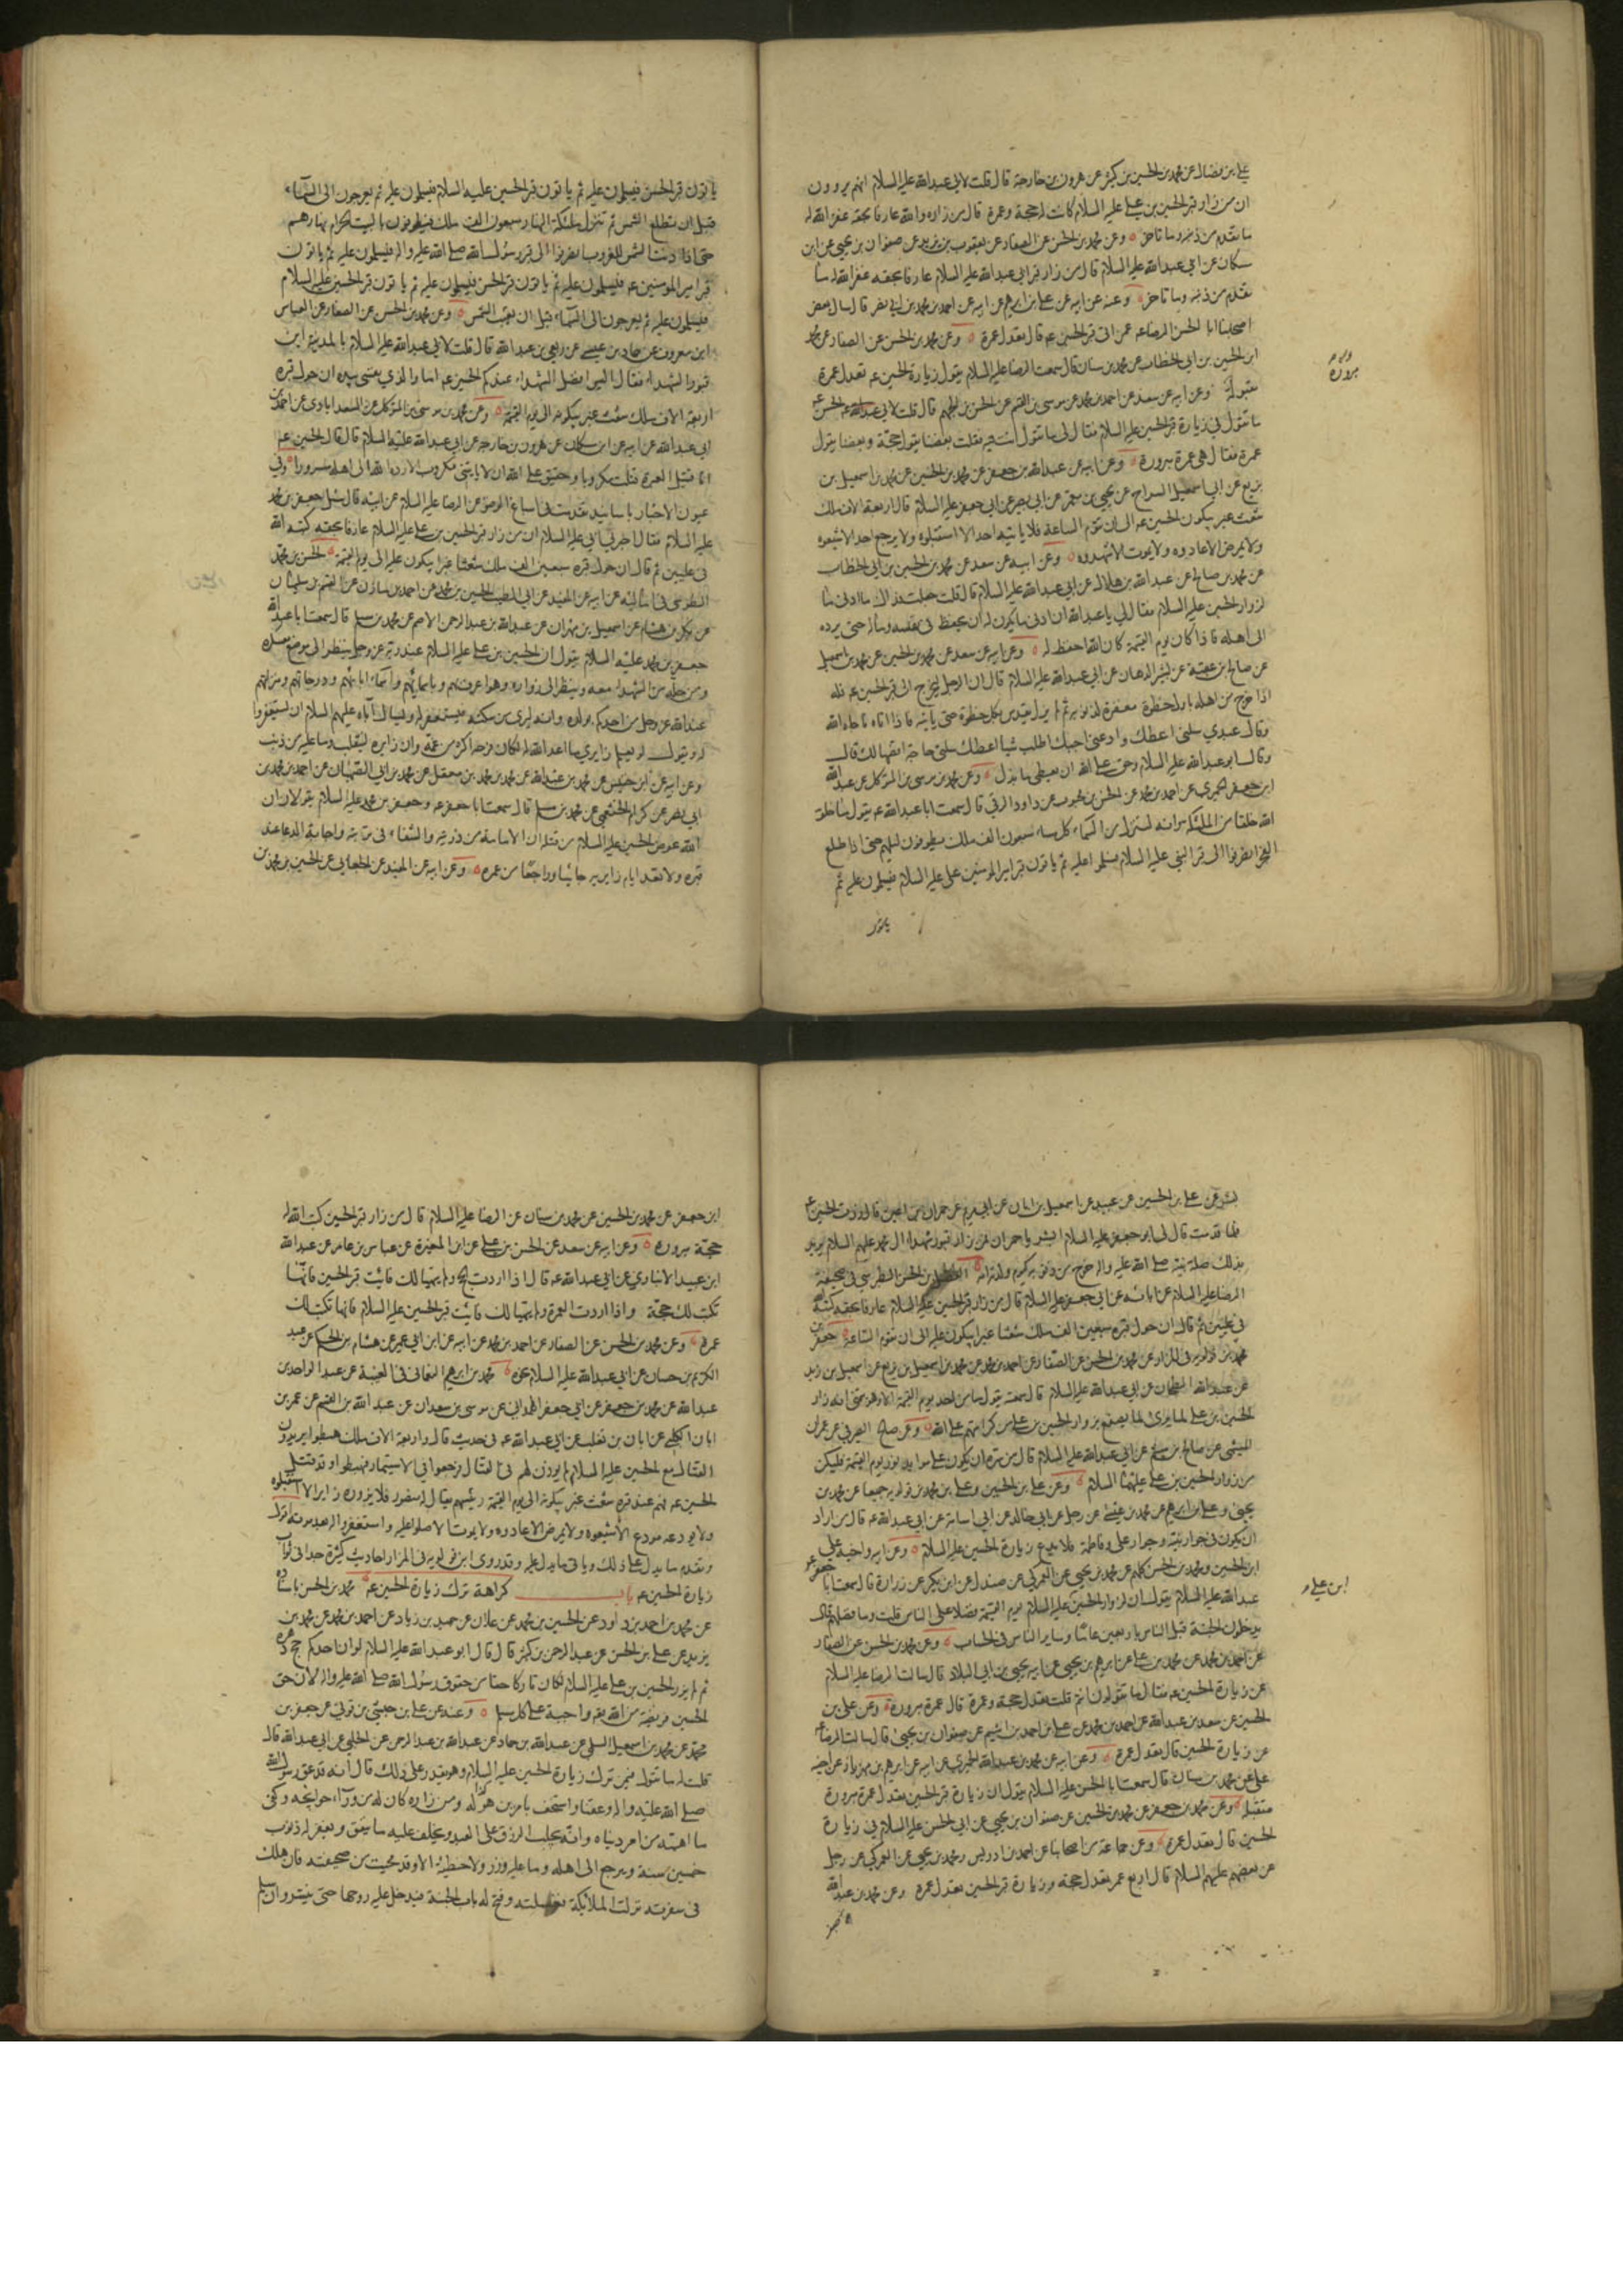 علي بن فضال عن محمد بن الحسين بن كثير عن هرون بن خارجة قال قلت لابي عبدالله عليه السلام انهم يروون
ان من زار قبر الحسين بن علي عليه السلام كانت له حجة وعمرة قال من زاره والله عارفا بحقه غفر الله له
ما تقدم من ذنبه وما تاخر وعن محمد بن الحسن عن الصفار عن يعقوب بن يزيد عن صفوان بن يحيى عن ابن
مسكان عن ابي عبدالله عليه السلام قال من زار قبر ابي عبدالله عليه السلام عارفا بحقه غفر الله له ما
تقدم من ذنبه وما تاخر وعنه عن ابيه عن علي بن ابرهيم عن ابيه عن احمد بن محمد بن ابي نصر قال سال بعض
اصحابنا ابا الحسن الرضا عه عمن اتى قبر الحسين عه قال تعدل عمرة وعن محمد بن الحسن عن الصفار عن محمد
ابن الحسين بن ابي الخطاب عن محمد بن سنان قال سمعت الرضا عليه السلام يقول زيارة الحسين عه تعدل عمرة
مقبولة وعن ابيه عن سعد عن احمد بن محمد عن موسى بن القسم عن الحسن بن الجهم قال قلت لابي الحسن عه
ما تقول في زيارة قبر الحسين عليه السلام فقال لي ما تقول انت فيه فقلت بعضنا يقول حجة وبعضنا يقول
عمرة فقال هي عمرة مبرورة وعن ابيه عن عبدالله بن جعفر عن محمد بن الحسين عن محمد بن اسمعيل بن
بزيع عن ابي اسمعيل السراج عن يحيى بن معمر عن ابي بصير عن ابي جعفر عليه السلام قال اربعة الاف ملك
شعث غبر يبكون الحسين عه الى ان تقوم الساعة فلا ياتيه احد الا استقبلوه ولا يرجع احد الا شيعوه
ولا يمرض الا عادوه ولا يموت الا شهدوه وعن ابيه عن سعد عن محمد بن الحسين بن ابي الخطاب
عن محمد بن صالح عن عبدالله بن هلال عن ابي عبدالله عليه السلام قال قلت جعلت فداك ما ادنى ما
لزوار الحسين عليه السلام فقال لي يا عبدالله ان ادنى ما يكون له ان يحفظ في نفسه وماله حتى يرده
الى اهله فاذا كان يوم القيمة كان الله احفظ له وعن ابيه عن سعد عن محمد بن الحسين عن محمد بن اسمعيل
عن صالح بن عقبة عن بشير الدهان عن ابي عبدالله عليه السلام قال ان الرجل ليخرج الى قبر الحسين عه فله
اذا خرج من اهله باول خطوة مغفرة لذنوبه ثم لم يزل يقدس بكل خطوة حتى ياتيه فاذا اتاه ناجاه الله
وقال عبدي سلني اعطك وادعني اجبك اطلب شيا اعطك سلني حاجة اقضها لك قال
وقال ابو عبدالله عليه السلام وحق على الله ان يعطي ما بذل وعن محمد بن موسى بن المتوكل عن عبدالله
ابن جعفر الحميري عن احمد بن محمد عن الحسن بن محبوب عن داود الرقي قال سمعت ابا عبدالله عه يقول ما خلق
الله خلقا من الملئكة وانه لينزل من السماء كل مساء سبعون الف ملك يطوفون ليلهم حتى اذا طلع
الفجر انصرفوا الى قبر النبي عليه السلام فسلموا عليه ثم ياتون قبر امير المومنين علي عليه السلام فيسلمون عليه ثم
ياتون
ياتون قبر الحسن فيسلمون عليه ثم ياتون قبر الحسين عليه السلام فيسلمون عليه ثم يعرجون الى السماء
قبل ان تطلع الشمس ثم تنزل ملئكة النهار سبعون الف ملك فيطوفون بالبيت الحرام نهارهم
حتى اذا دنت الشمس للغروب انصرفوا الى قبر رسول الله صلى الله عليه واله فيسلمون عليه ثم ياتون
قبر امير المومنين عه فيسلمون عليه ثم ياتون قبر الحسن فيسلمون عليه ثم ياتون قبر الحسين عليه السلام
فيسلمون عليه ثم يعرجون الى السماء قبل ان تغيب الشمس وعن محمد بن الحسن عن الصفار عن العباس
ابن معروف عن حماد بن عيسى عن ربعي بن عبدالله قال قلت لابي عبدالله عليه السلام بالمدينة اين
قبور الشهداء فقال اليس افضل الشهداء عندكم الحسين عه اما والذي نفسي بيده ان حول قبره
اربعة الاف ملك شعث غبر يبكونه الى يوم القيمة وعن محمد بن موسى بن المتوكل عن السعدابادي عن احمد بن
ابي عبدالله عن ابيه عن ابن مسكان عن هرون بن خارجة عن ابي عبدالله عليه السلام قال قال الحسين عه
انا قتيل العبرة قتلت مكروبا وحقيق على الله ان لا ياتيني مكروب الا رده الله الى اهله مسرورا وفي
عيون الاخبار باسانيد تقدمت في اسباغ الوضوء عن الرضا عليه السلام عن ابيه قال سئل جعفر بن محمد
عليه السلام فقال اخبرني ابي عليه السلام ان من زار قبر الحسين بن علي عليه السلام عارفا بحقه كتبه الله
في عليين ثم قال ان حول قبره سبعين الف ملك شعثا غبرا يبكون عليه الى يوم القيمة الحسن بن محمد
الطوسي في اماليه عن ابيه عن المفيد عن ابي الطيب الحسين بن محمد عن احمد بن مازن عن القسم بن سليمان
عن بكر بن هشام عن اسمعيل بن مهران عن عبدالله بن عبدالرحمن الاصم عن محمد بن مسلم قال سمعت ابا عبدالله
جعفر بن محمد عليه السلام يقول ان الحسين بن علي عليه السلام عند ربه عز وجل ينظر الى موضع معسكره
ومن حله من الشهداء معه وينظر الى زواره وهو اعرف بهم وباسمائهم واسماء ابائهم ودرجاتهم ومنزلتهم
عند الله عز وجل من احدكم بولده وانه ليرى من سكنه فيستغفر له ويسال آباءه عليهم السلام ان يستغفروا
له ويقول لو يعلم زايري ما اعد الله له لكان فرحه اكثر من غمه وان زايره لينقلب وما عليه من ذنب
وعن ابيه عن ابن خنيس عن محمد بن عبدالله عن محمد بن محمد بن معقل عن محمد بن ابي الصهبان عن احمد بن محمد بن
ابي نصر عن كرام الخثعمي عن محمد بن مسلم قال سمعت ابا جعفر عه وجعفر بن محمد عليه السلام يقولان ان
الله عوض الحسين عليه السلام من قتله ان الامامة من ذريته والشفاء في تربته واجابة الدعا عند
قبره ولا تعد ايام زايريه جائيا وراجعا من عمره وعن ابيه عن المفيد عن الجعابي عن الحسين بن محمد بن
بشر عن علي بن الحسين عن عبيد عن اسمعيل بن ابان عن ابي مريم عن حمران بن اعين قال زرت الحسين عه
فلما قدمت قال لي ابو جعفر عليه السلام ابشر يا حمران فمن زار قبور شهداء ال محمد عليهم السلام يريد
بذلك صلة نبيه صلى الله عليه واله خرج من ذنوبه كيوم ولدته امه بن الحسن الطبرسي في صحيفة
الرضا عليه السلام عن ابائه عن ابي جعفر عليه السلام قال من زار قبر الحسين عليه السلام عارفا بحقه كتبه الله
في عليين ثم قال ان حول قبره سبعين الف ملك شعثا غبرا يبكون عليه الى ان تقوم الساعة جعفر بن
محمد بن قولويه في المزار عن محمد بن الحسن عن الصفار عن احمد بن محمد عن محمد بن اسمعيل بن بزيع عن اسمعيل بن زيد
عن عبدالله الطحان عن ابي عبدالله عليه السلام قال سمعته يقول ما من احد يوم القيمة الا وهو يتمنى انه زار
الحسين بن علي لما يرى لما يصنع بزوار الحسين بن علي من كرامتهم على الله وعن صالح الصيرفي عن عمران
الميثمي عن صالح بن ميثم عن ابي عبدالله عليه السلام قال من سره ان يكون على موايد نور يوم القيمة فليكن
من زوار الحسين بن علي عليهما السلام وعن علي بن الحسين وعلي بن محمد بن قولويه جميعا عن محمد بن
يحيى وعلي بن ابرهيم عن محمد بن عيسى عن رجل عن ابي خالد عن ابي اسامة عن ابي عبدالله عه قال من اراد
ان يكون في جوار نبيه وجوار علي وفاطمة فلا يدع زيارة الحسين عليه السلام وعن ابيه واخيه علي
ابن الحسين ومحمد بن الحسن كلهم عن محمد بن يحيى عن العمركي عن صندل عن ابن بكير عن زرارة قال سمعت ابا
عبدالله عليه السلام يقول ان لزوار الحسين عليه السلام يوم القيمة فضلا على الناس قلت وما فضلهم قال
يدخلون الجنة قبل الناس باربعين عاما وساير الناس في الحساب وعن محمد بن الحسن عن الصفار
عن احمد بن محمد عن محمد بن علي عن ابرهيم بن يحيى عن ابيه يحيى بن ابي البلاد قال سالت الرضا عليه السلام
عن زيارة الحسين عه فقال ما تقولون انتم قلت تعدل حجة وعمرة قال عمرة مبرورة وعن علي بن
الحسين عن سعد بن عبدالله عن احمد بن محمد عن علي بن احمد بن اشيم عن صفوان بن يحيى قال سالت الرضا عه
عن زيارة الحسين قال تعدل عمرة وعن ابيه عن محمد بن عبدالله الحميري عن ابيه عن ابرهيم بن مهزيار عن اخيه
علي عن محمد بن سنان قال سمعت ابا الحسن عليه السلام يقول ان زيارة قبر الحسين تعدل عمرة مبرورة
متقبلة وعن محمد بن جعفر عن محمد بن الحسين عن صفوان بن يحيى عن ابي الحسن عليه السلام في زيارة
الحسين قال تعدل عمرة وعن جماعة من اصحابنا عن احمد بن ادريس ومحمد بن يحيى عن العمركي عن رجل
عن بعضهم عليهم السلام قال اربع عمر تعدل حجة وزيارة قبر الحسين تعدل عمرة وعن محمد بن عبدالله
ابن علي
ابن جعفر عن محمد بن الحسين عن محمد بن سنان عن الرضا عليه السلام قال من زار قبر الحسين كتب الله له
حجة مبرورة وعن ابيه عن سعد عن الحسن بن علي عن ابن المغيرة عن عباس بن عامر عن عبدالله
ابن عبيد الانباري عن ابي عبدالله عه قال اذا اردت الحج ولم يتهيا لك فائت قبر الحسين فانها
تكتب لك حجة واذا اردت العمرة ولم يتهيا لك فايت قبر الحسين عليه السلام فانها تكتب لك
عمرة وعن محمد بن الحسن عن الصفار عن احمد بن محمد عن ابيه عن ابن ابي عمير عن هشام بن الحكم عن عبد
الكريم بن حسان عن ابي عبدالله عليه السلام نحوه محمد بن ابرهيم النعماني في الغيبة عن عبد الواحد بن
عبدالله عن محمد بن جعفر عن ابي جعفر الهمداني عن موسى بن سعدان عن عبدالله بن القسم عن عمر بن
ابان الكلبي عن ابان بن تغلب عن ابي عبدالله عه في حديث قال واربعة الاف ملك هبطوا يريدون
القتال مع الحسين عليه السلام لم يوذن لهم في القتال فرجعوا في الاستيمار فهبطوا وقد قتل
الحسين عه فهم عند قبره شعث غبر يبكونه الى يوم القيمة رئيسهم يقال له منصور فلا يزوره زاير الا استقبلوه
ولا يودعه مودع الا شيعوه ولا يمرض الا عادوه ولا يموت الا صلوا عليه واستغفروا له بعد موته اقول
وتقدم ما يدل على ذلك وياتي ما يدل عليه وقد روى ابن قولويه في المزار احاديث كثيرة جدا في ثواب
زيارة الحسين عه باب كراهة ترك زيارة الحسين عه محمد بن الحسن باسناده
عن محمد بن احمد بن داود عن الحسين بن محمد عن علان عن حميد بن زياد عن احمد بن محمد عن محمد بن
يزيد عن علي بن الحسن عن عبدالرحمن بن كثير قال قال ابو عبدالله عليه السلام لو ان احدكم حج دهره
ثم لم يزر الحسين بن علي عليه السلام لكان تاركا حقا من حقوق رسول الله صلى الله عليه واله لان حق
الحسين فريضة من الله تعم واجبة على كل مسلم وعنه عن علي بن حبشي بن قوني عن جعفر بن
محمد عن محمد بن اسمعيل السلمي عن عبدالله بن حماد عن عبدالله بن عبدالرحمن عن الحلبي عن ابي عبدالله قال
قلت له ما تقول فيمن ترك زيارة الحسين عليه السلام وهو يقدر على ذلك قال انه قد عق رسول الله
صلى الله عليه واله وعقنا واستخف بامر هو له ومن زاره كان الله من وراء حوايجه وكفى
ما اهمه من امر دنياه وانه يجلب الرزق على العبد ويخلف عليه ما ينفق ويغفر له ذنوب
خمسين سنة ويرجع الى اهله وما عليه وزر ولا خطيئة الا وقد محيت من صحيفته فان هلك
في سفرته نزلت الملائكة فغسلته وفتح له باب الجنة فيدخل عليه روحها حتى ينشر وان سلم